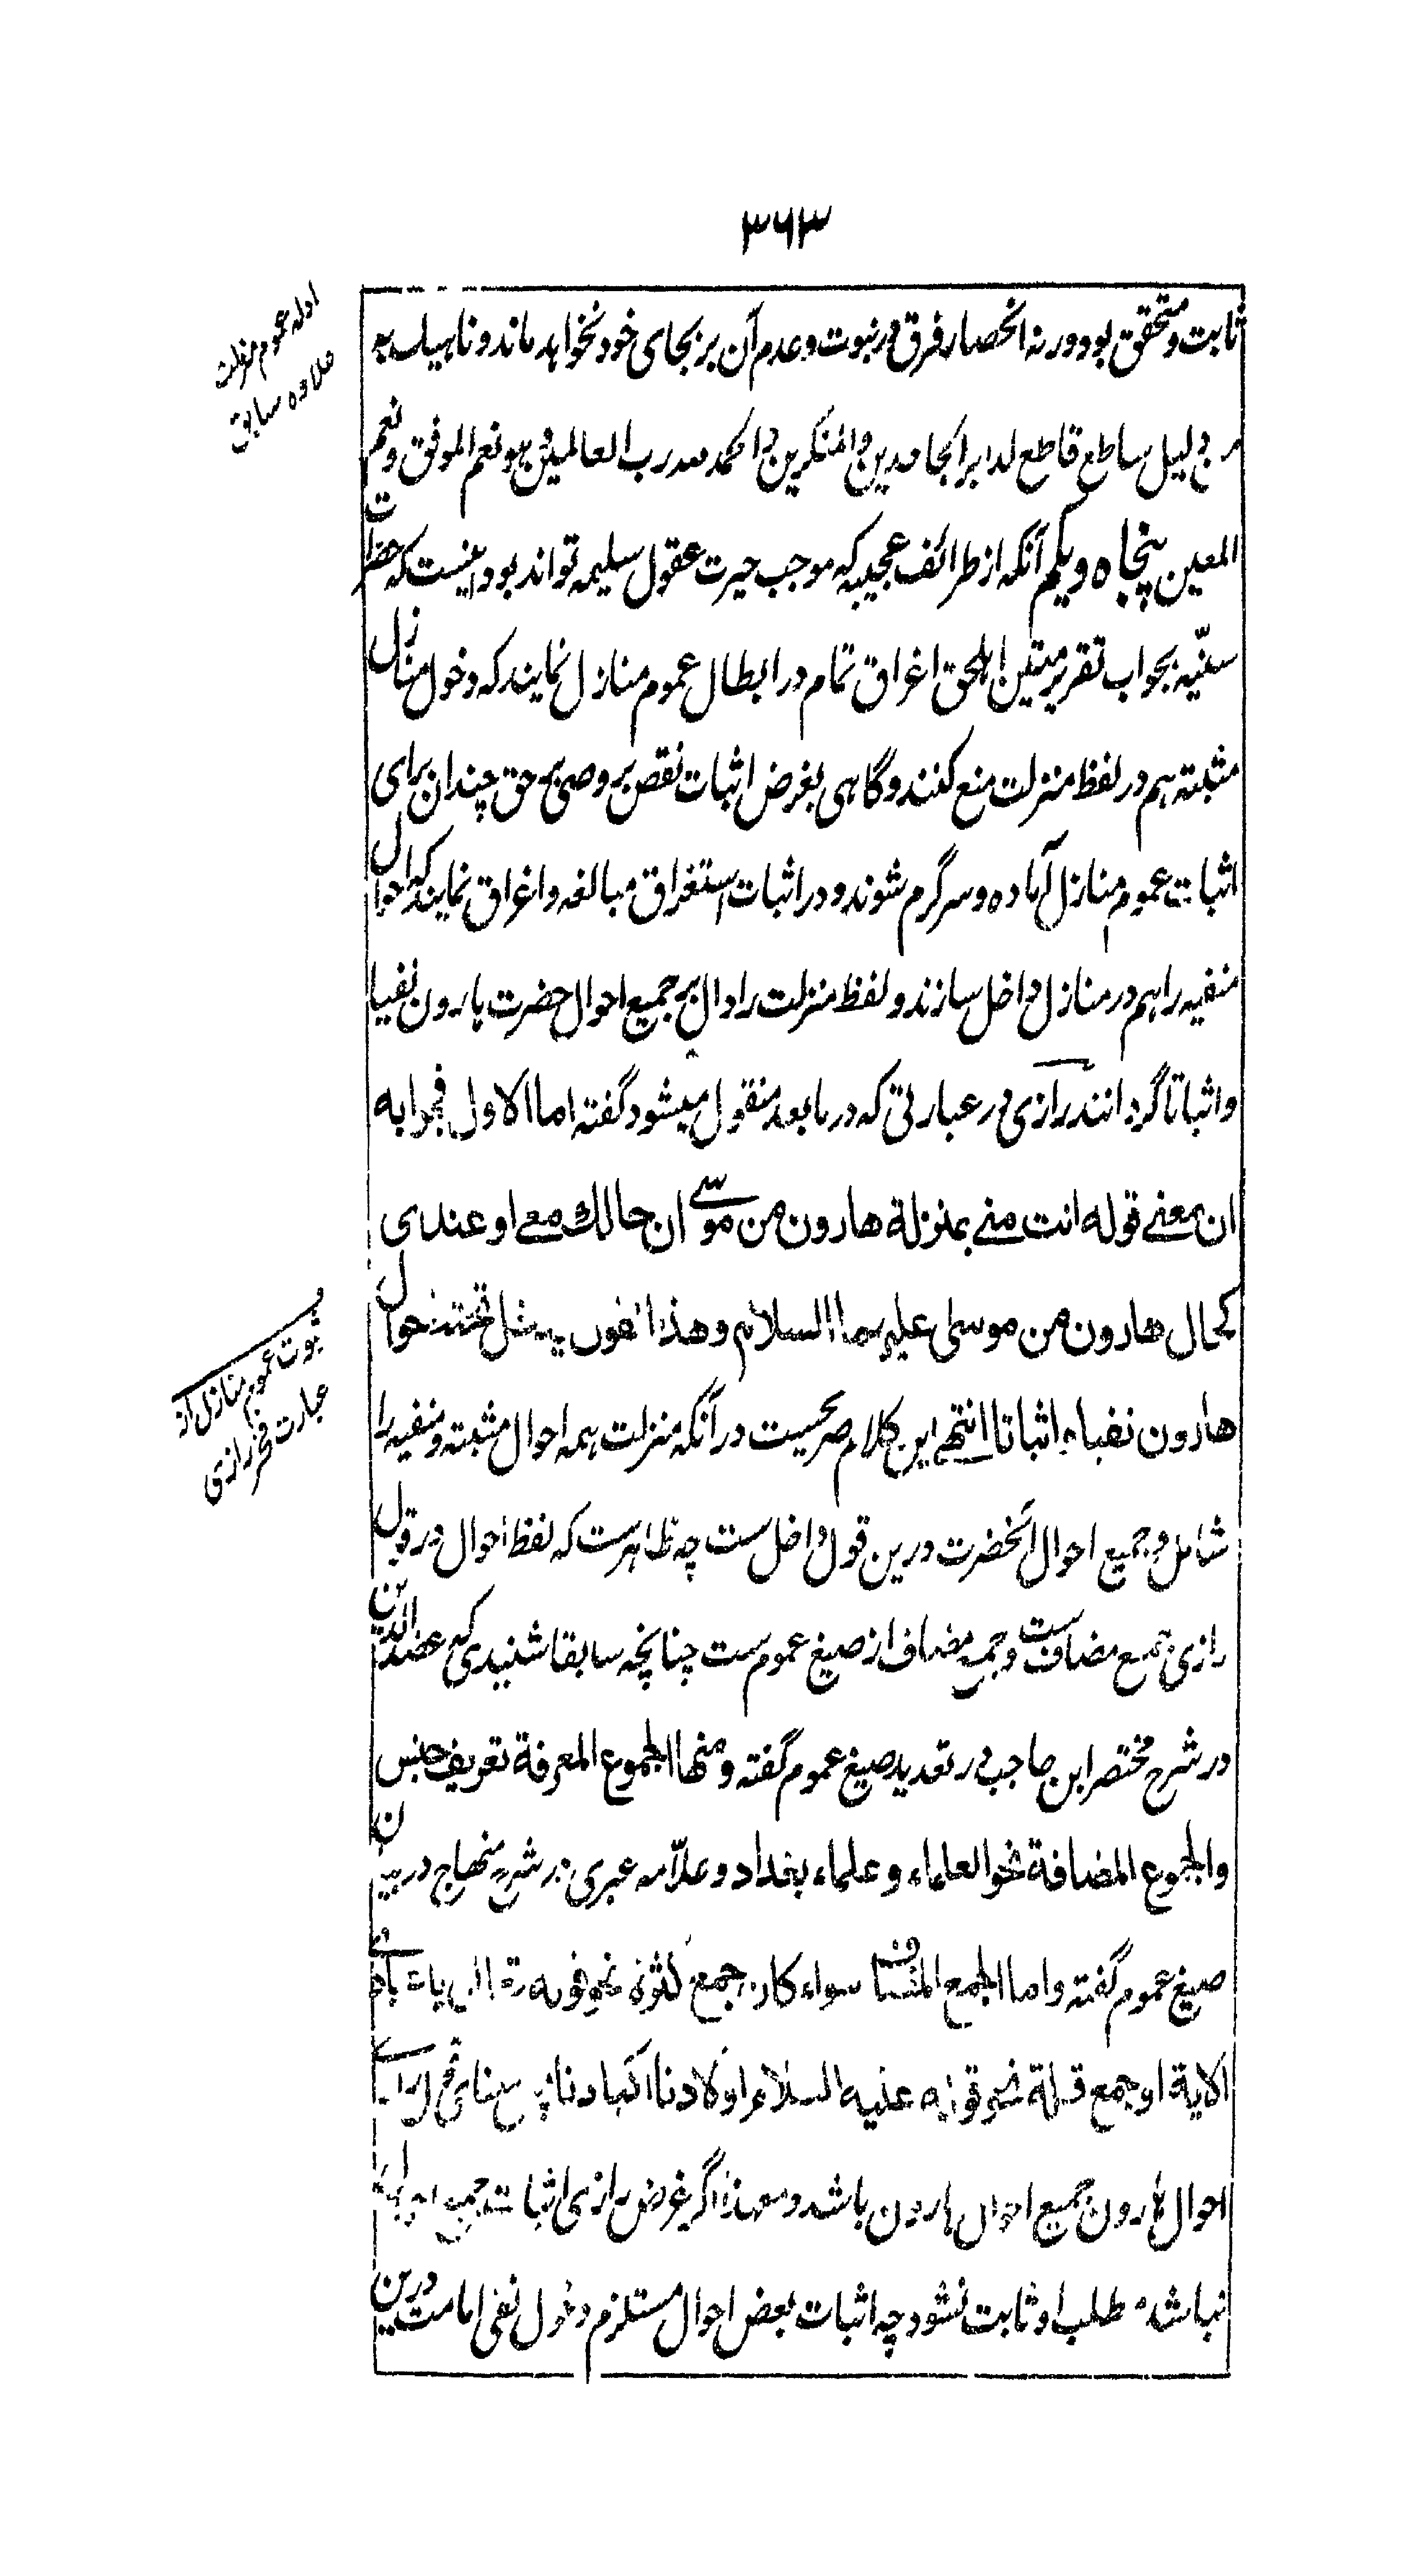 ۳۶۳
ادله عموم منزلت
علاوه سابق
ثابت و متحقق بود ورنه انحصار فرق در نبوت و عدم آن بر بجای خود نخواهد ماند و ناهیک به
من دلیل ساطع قاطع لدابر الجاحدین و المنکرین و الحمد لله رب العالمین و هو نعم الموفق و نعم
المعین پنجاه و یکم آنکه از طرائف عجیبه که موجب حیرت عقول سلیمه تواند بود اینست که حضرات
سنّیه بجواب تقریر متین اهل حق اغراق تمام در ابطال عموم منازل نمایند که دخول منازل
مثبته هم در لفظ منزلت منع کنند و گاهی بغرض اثبات نقص بر وصی بر حق چندان برای
اثبات عموم منازل آماده و سرگرم شوند و در اثبات استغراق مبالغه و اغراق نمایند که احوال
منفیه را هم در منازل داخل سازند و لفظ منزلت را دال بر جمیع احوال حضرت هارون نفیا
و اثباتا گردانند رازی در عبارتی که در ما بعد منقول میشود گفته اما الاول فجوابه
ان معنے قوله انت منے بمنزلة هارون من موسے ان حالك معے او عندی
کحال هارون من موسی علیهما السلام و هذا القول یدخل تحته احوال
ثبوت عموم منازل از
عبارت فخر رازی
هارون نفیا و اثباتا انتهے این کلام صریحست در آنکه منزلت همه احوال مثبته و منفیه را
شامل و جمیع احوال آنحضرت درین قول داخل ست چه ظاهرست که لفظ احوال در قول
رازی جمع مضاف ست و جمع مضاف از صیغ عموم ست چنانچه سابقا شنیدی که عضد الدین
در شرح مختصر ابن حاجب در تعدید صیغ عموم گفته و منها الجموع المعرفة تعریف جنس
و الجموع المضافة نحو العلماء و علماء بغداد و علّامه عبری در شرح منهاج در بیان
صیغ عموم گفته و اما الجمع المضاف سواء کان جمع کثرة نحو قوله یا عبادی
الایة او جمع قلة نحو قوله علیه السلام اولادنا اکبادنا پس معنای
احوال هارون جمیع احوال هارون باشد و معهذا اگر غرض رازی اثبات جمیع احوال
نباشد مطلب او ثابت نشود چه اثبات بعض احوال مستلزم دخول نفی امامت درین